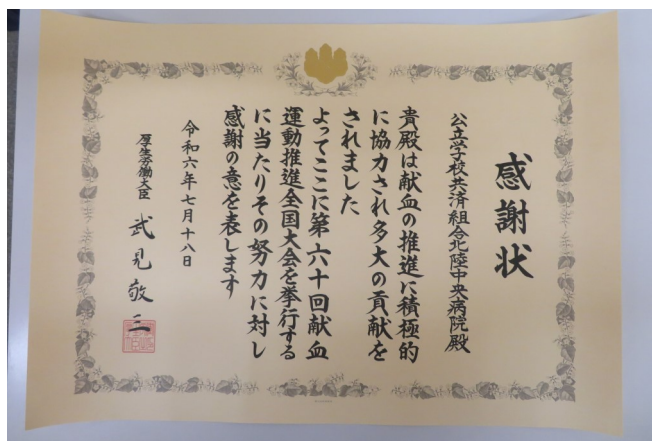 感謝状
公立学校共済組合北陸中央病院殿
貴殿は献血の推進に積極的
に協力され多大の貢献を
されました
よってここに第六十回献血
運動推進全国大会を挙行する
に当たりその努力に対し
感謝の意を表します
令和六年七月十八日
厚生労働大臣 武見敬三